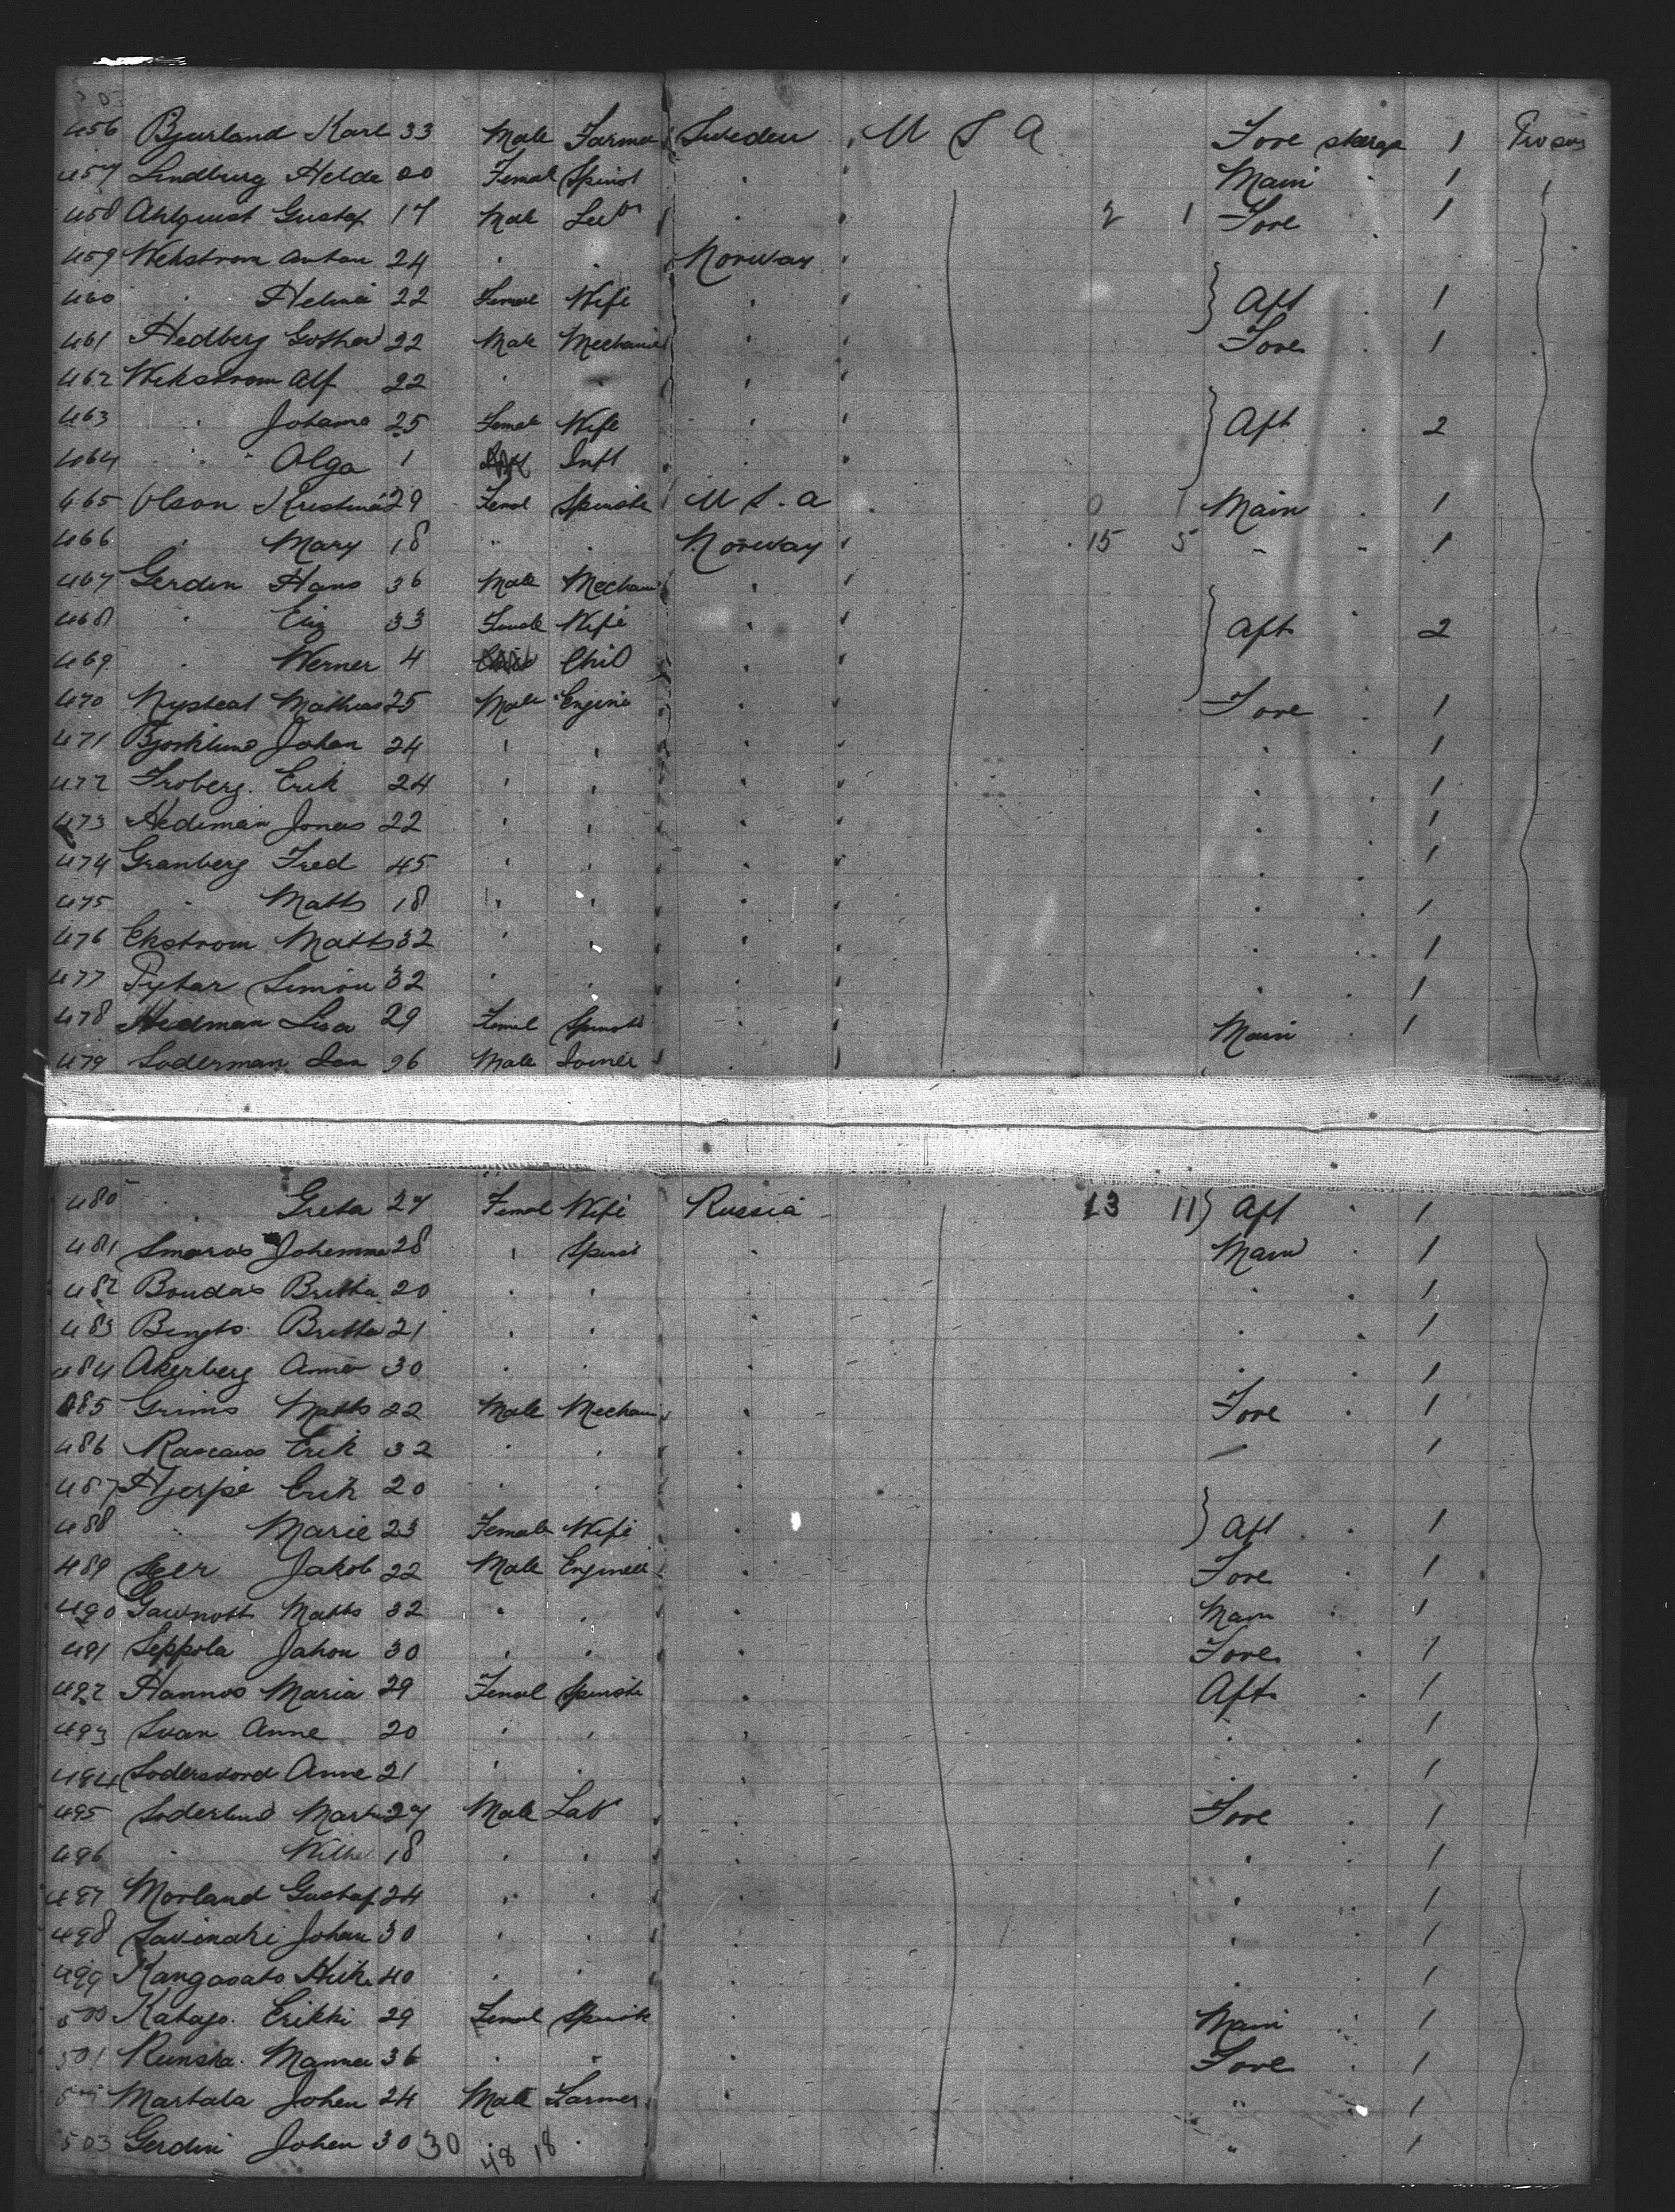 456 Bjurland Karl 33 Male Farmer Sweden U S A Fore steerge 1
457 Lindburg Helda 20 Femal Spinst " Main " 1
458 Ahlquist Gustaf 17 Male " 2 1 Fore 1
459 Wekstrom Anton 24 " " Norway
460 " Helma 22 Femal Wife " Aft 1
461 Hedberg Gothar 22 Male Mechanic " Fore 1
462 Wikstrom Alf 22 " " "
463 " Johana 25 Female Wife " Aft 2
464 " Olga 1 Inft "
465 Olson Kristina 29 Femal Spinste U S. A 0 1 Main 1
466 " Mary 18 " " Norway 15 5 " " 1
467 Gerden Hans 36 Male Mechani "
468 " Eliz 33 Female Wife " Aft 2
469 " Werner 4 Chil "
470 Mathias 25 Male Engine " Fore 1
471 Bjorklund Johan 24 " " " " " 1
472 Froberg. Erik 24 " " " " " 1
473 Hedman Jonas 22 " " " " " 1
474 Granberg Fred 45 " " " " " 1
475 " Matts 18 " " " " " 1
476 Ekstrom Matts 32 " " " " " 1
477 Simon 32 " " " " " 1
478 Hedman Lisa 29 Femal Spinste " Main " 1
479 Soderman 26 Male Joiner "
480 " Greta 27 Femal Wife Russia 13 11 Aft " 1
481 Smaros Johanna 28 " Spinst " Main " 1
482 Bondas Britta 20 " " " " " 1
483 Bengts Britta 21 " " " " " 1
484 Akerberg Anna 30 " " " " " 1
485 Grims Matts 22 Male Mechani " Fore " 1
486 Erik 32 " " " " 1
487 Hjerpe Erik 20 " " "
488 " Marie 23 Female Wife " Aft " 1
489 Jakob 22 Male Enginee " Fore " 1
490 Matts 32 " " " Main " 1
491 Seppola Jahon 30 " " " Fore " 1
492 Hannos Maria 29 Femal Spinste " Aft " 1
493 Svan Anne 20 " " " " " 1
494 Anne 21 " " " " " 1
495 Soderlund 27 Male Lab " Fore " 1
496 " 18 " " " " " 1
497 Morland Gustaf 24 " " " " " 1
498 Johan 30 " " " " " 1
499 Kangasato 40 " " " " " 1
500 Erikki 29 Femal Spinste " Main " 1
501 36 " " " Fore " 1
Martala Johan 24 Male Farmer " " " 1
503 Gerdin Johan 30 30 48 18 " " 1